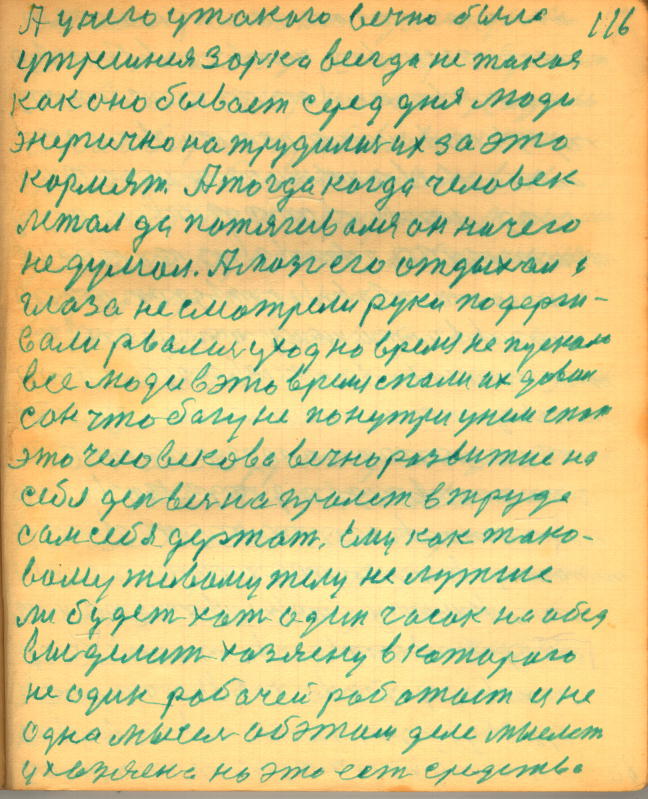 А у него у такого вечно было 116
утрешния зорка всегда не такая
как оно бывает серед дня люди
энергично натрудились их за это
кормят. А тогда когда человек
летал да потягивался он ничего
не думал. А мозг его отдыхал и
глаза не смотрели руки подерги-
вали рвался уход но время не пускало
все люди в это время спали их довил
сон что багу не по нутри у нем спат
это человекова вечно развитие на
себя в труде
сам себя держат. Ему как тако-
вому живому телу не лутше
ли будет хот один часок на обед
выделит хозяену в которого
не один рабочей работает и не
одна мысел об этом деле мыслет
у хозяена но это ест средства